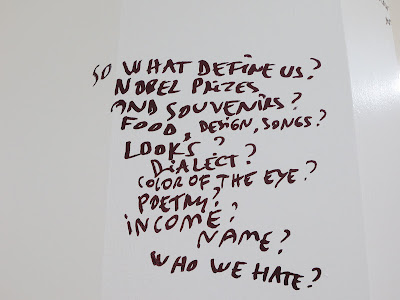 SO WHAT DEFINE US?
NOBEL PRIZES
AND SOUVENIRS?
FOOD, DESIGN, SONGS?
LOOKS?
DIALECT?
COLOR OF THE EYE?
POETRY?
INCOME?
NAME?
WHO WE HATE?